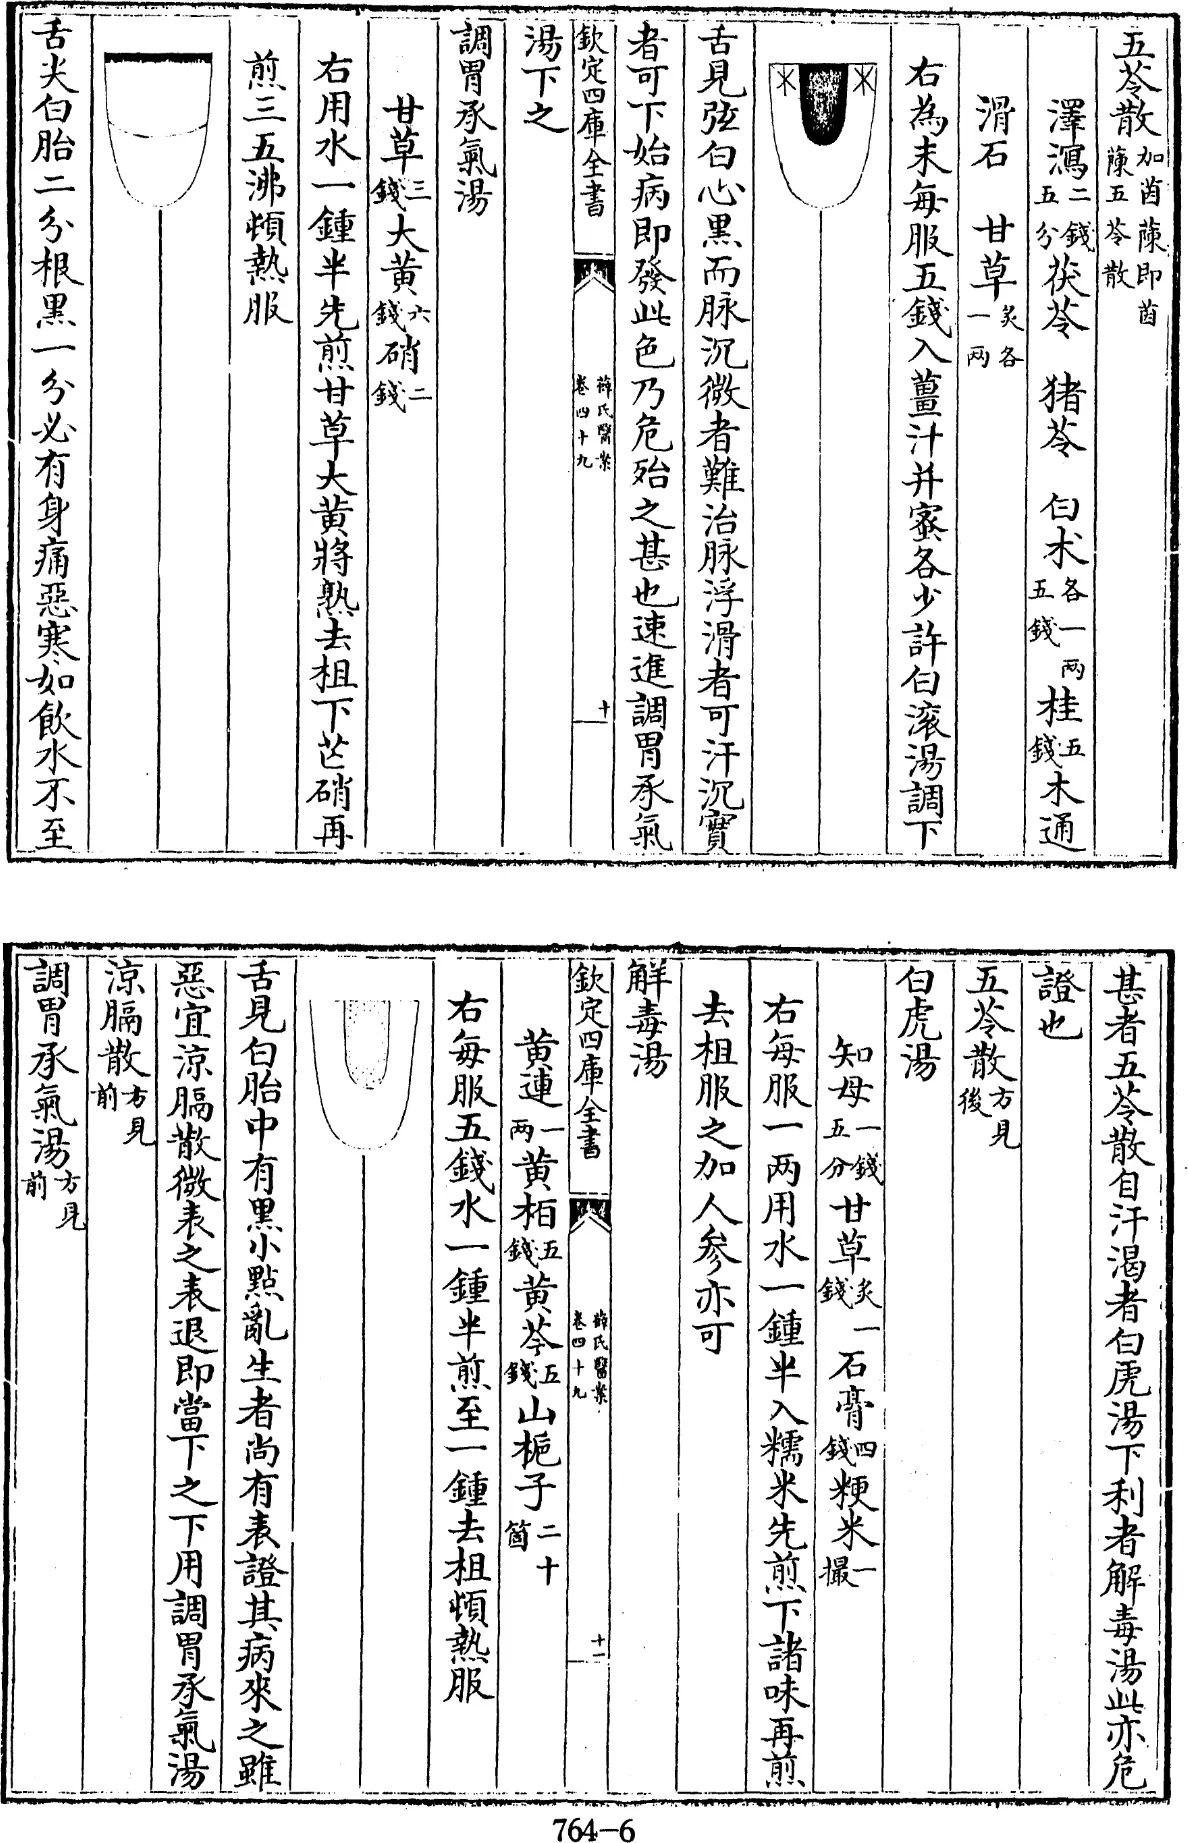 五苓散加茵蔯即茵蔯五苓散
澤瀉二錢五分茯苓　猪苓　白术各一两五錢桂五錢木通
滑石　甘草炙各一两
右為末每服五錢入薑汁并蜜各少許白滚湯調下
舌見弦白心黒而脉沉微者難治脉浮滑者可汗沉實
者可下始病即發此色乃危殆之甚也速進調胃承氣
欽定四庫全書
薛氏醫案
卷四十九
十
湯下之
調胃承氣湯
甘草三錢大黄六錢硝二錢
右用水一鍾半先煎甘草大黄將熟去柤下芒硝再
煎三五沸頓熱服
舌尖白胎二分根黒一分必有身痛惡寒如飲水不至
甚者五苓散自汗渴者白虎湯下利者解毒湯此亦危
證也
五苓散方見後
白虎湯
知母一錢五分甘草炙一錢石膏四錢粳米一撮
右每服一两用水一鍾半入糯米先煎下諸味再煎
去柤服之加人參亦可
解毒湯
欽定四庫全書
薛氏醫案
卷四十九
十一
黄連一两黄栢五錢黄芩五錢山梔子二十箇
右每服五錢水一鍾半煎至一鍾去柤頓熱服
舌見白胎中有黒小點亂生者尚有表證其病來之雖
惡宜涼膈散微表之表退即當下之下用調胃承氣湯
涼膈散方見前
調胃承氣湯方見前
764-6